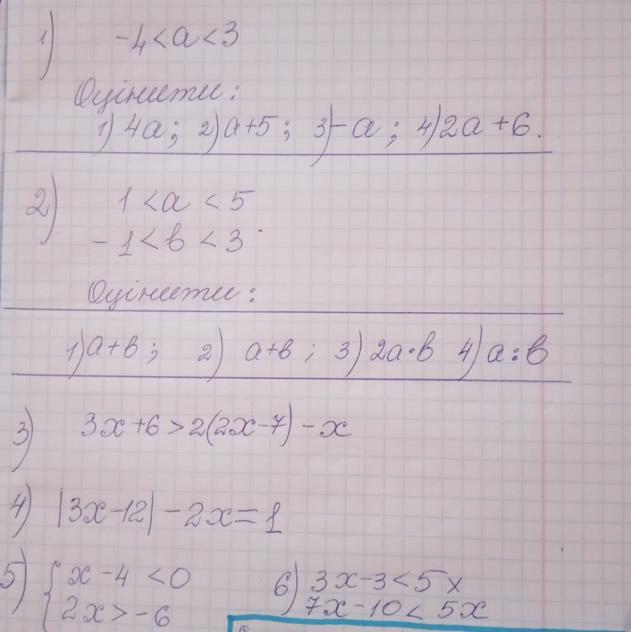 1) -4<a<3
Оцінити:
1) 4a; 2) a+5; 3) -a; 4) 2a+6.
2) 1<a<5
-1<b<3
Оцінити:
1) a+b; 2) a+b; 3) 2a·b 4) a:b
3) 3x+6>2(2x-7)-x
4) |3x-12|-2x=1
5) { x-4<0 6) 3x-3<5x
2x>-6 7x-10<5x